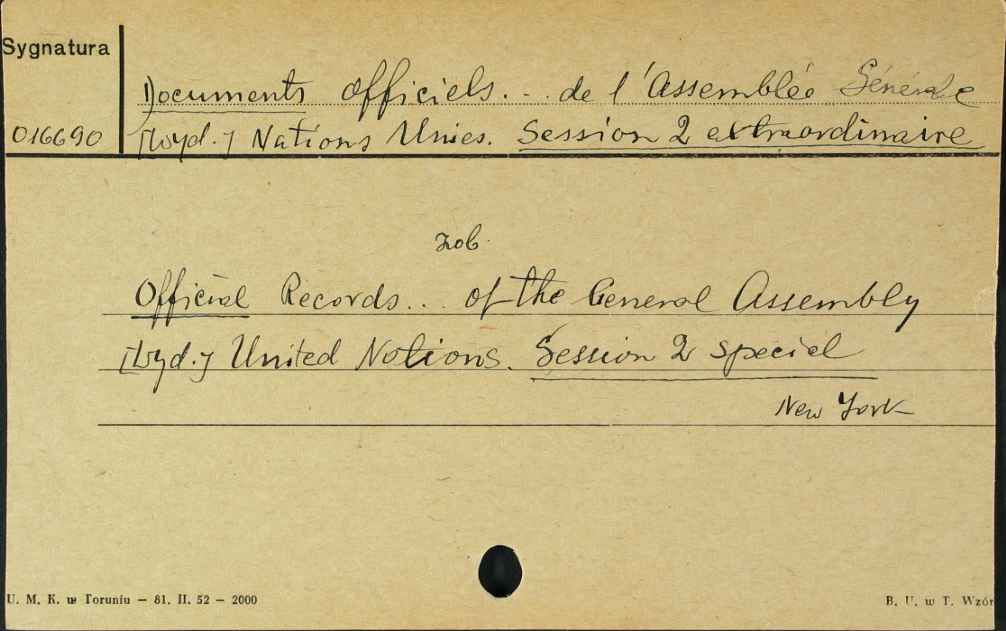 Sygnatura
Documents officiels... de l'Assemblée Générale
016690 [wyd.] Nations Unies. Session 2 extraordinaire
zob.
Official Records... of the General Assembly
[wyd.] United Nations. Session 2 special
New York
U. M. K. w Toruniu — 81. II. 52 — 2000
B. U. w T. Wzór